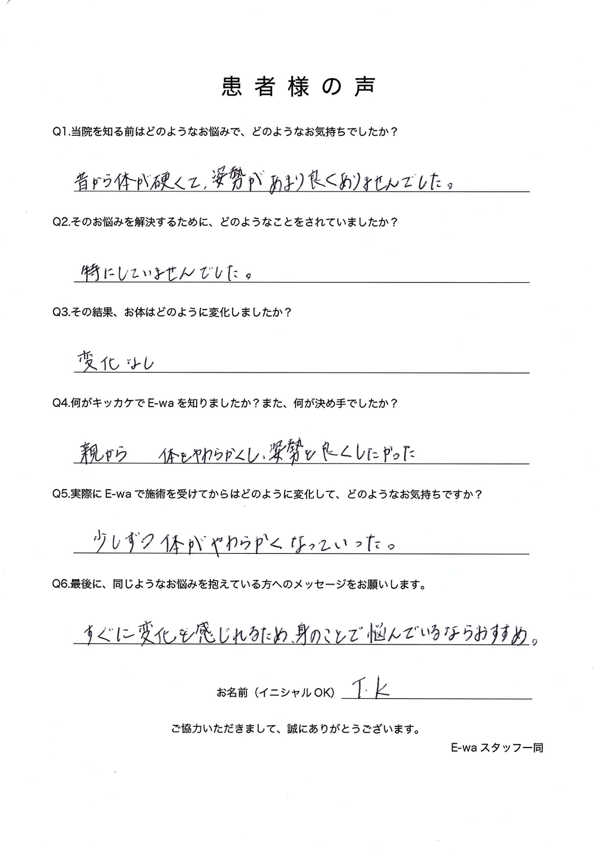 患者様の声
Q1.当院を知る前はどのようなお悩みで、どのようなお気持ちでしたか？
昔から体が硬くて、姿勢があまり良くありませんでした。
Q2.そのお悩みを解決するために、どのようなことをされていましたか？
特にしていませんでした。
Q3.その結果、お体はどのように変化しましたか？
変化なし
Q4.何がキッカケでE-waを知りましたか？また、何が決め手でしたか？
親から 体をやわらかくし、姿勢を良くしたかった
Q5.実際にE-waで施術を受けてからはどのように変化して、どのようなお気持ちですか？
少しずつ体がやわらかくなっていった。
Q6.最後に、同じようなお悩みを抱えている方へのメッセージをお願いします。
すぐに変化を感じれるため、身のことで悩んでいるならおすすめ。
お名前（イニシャルOK） T.K
ご協力いただきまして、誠にありがとうございます。
E-waスタッフ一同